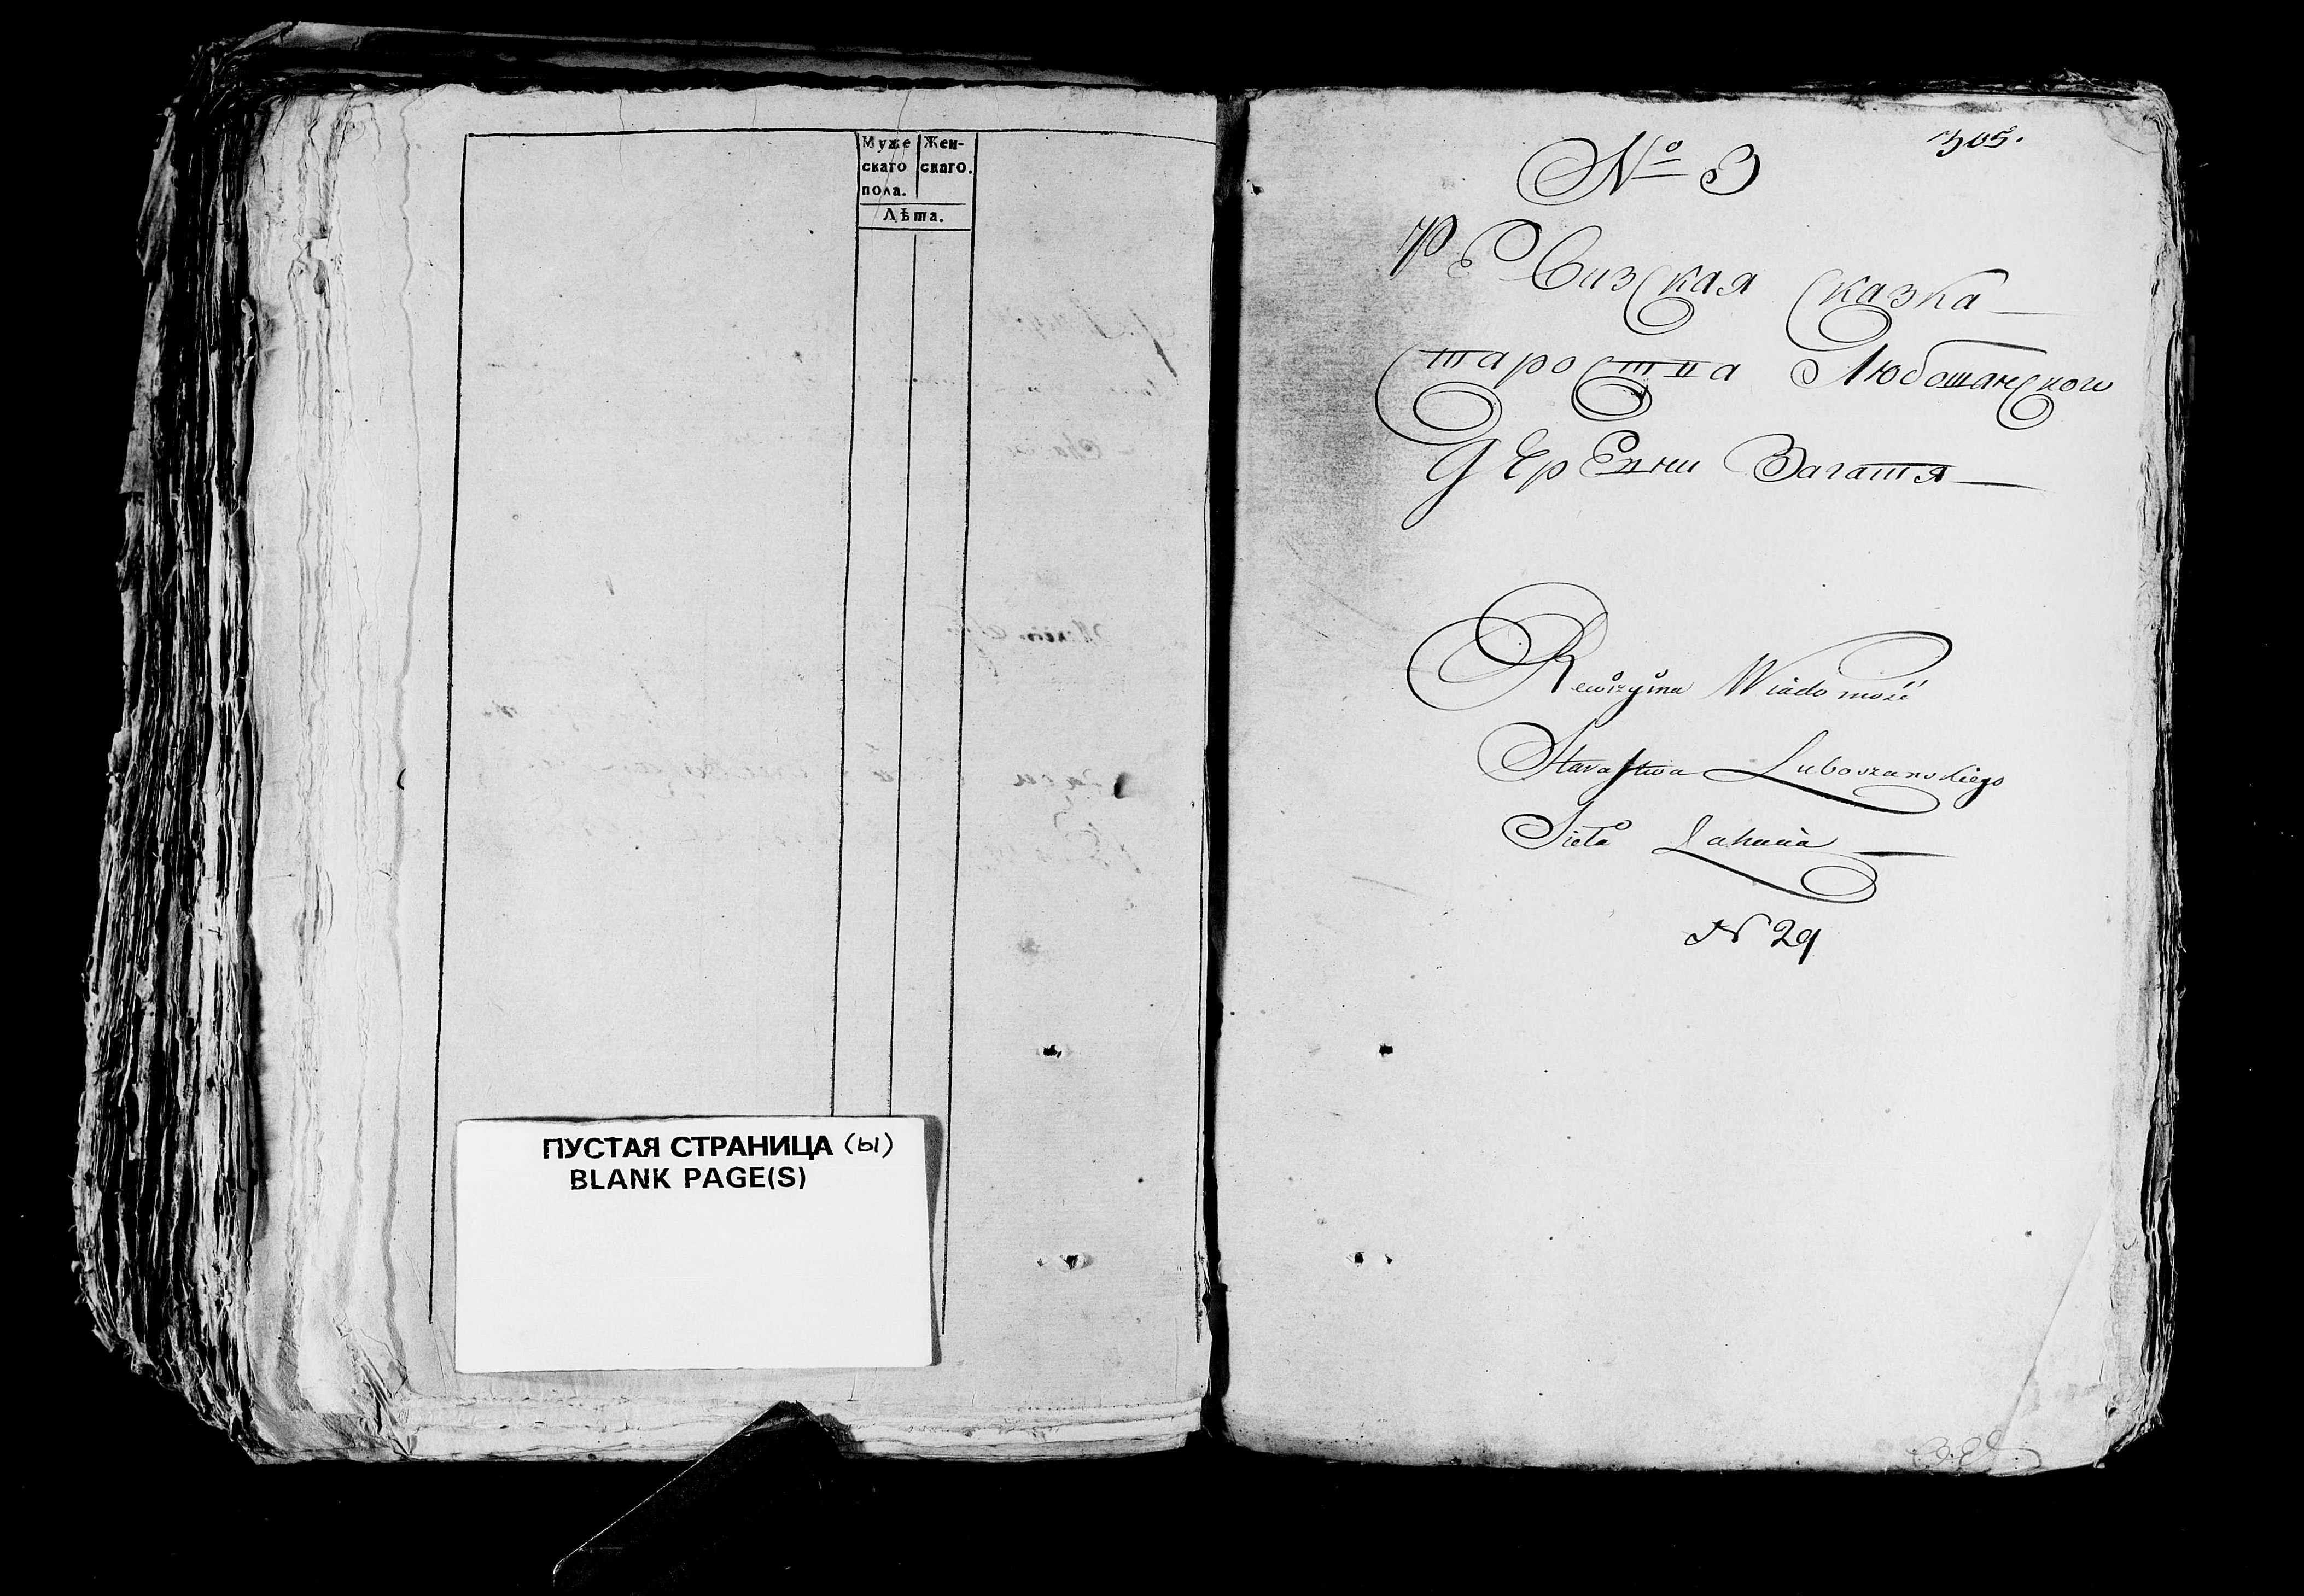 Муже
скаго
пола.
Жен-
скаго.
Лѣта.
ПУСТАЯ СТРАНИЦА (ы)
BLANK PAGE(S)
305.
№ 3
РЕвизская сказка
староства Любошанского
дЕрЕвни Загатя
Rewizyina Wiadomość
Starastwa Luboszanskiego
Sieła
N 29